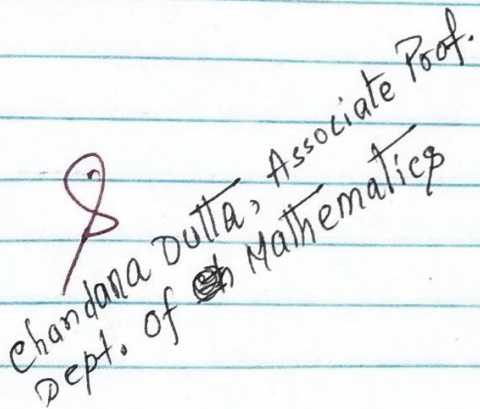 Chandana Dutta, Associate Prof.
Dept. of Mathematics